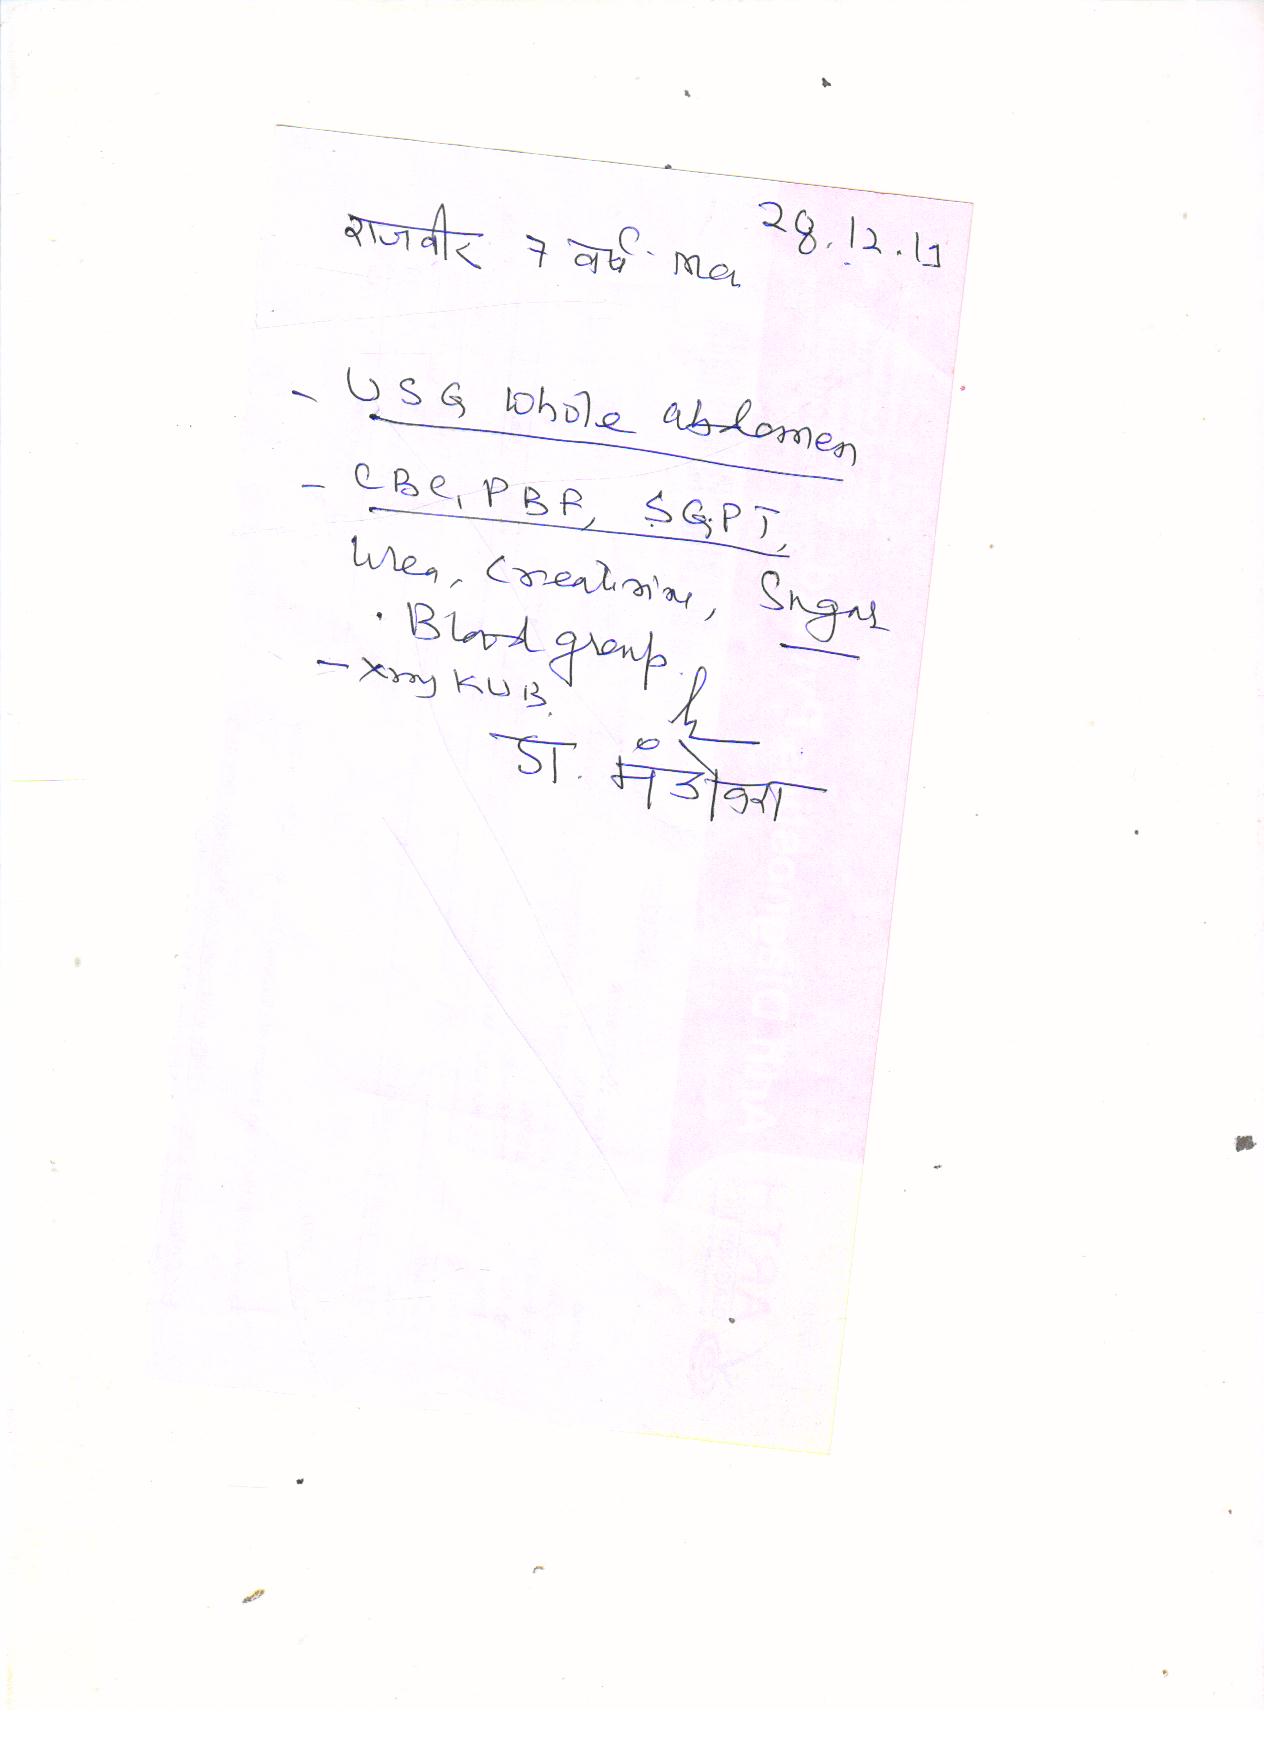 28.12.17
राजवीर 7 वर्ष. Ma
- USG whole abdomen
- CBC, PBF, SGPT,
Urea, Creatinine, Sugar
. Blood group.
- Xray KUB.
डा. मंडोवरा